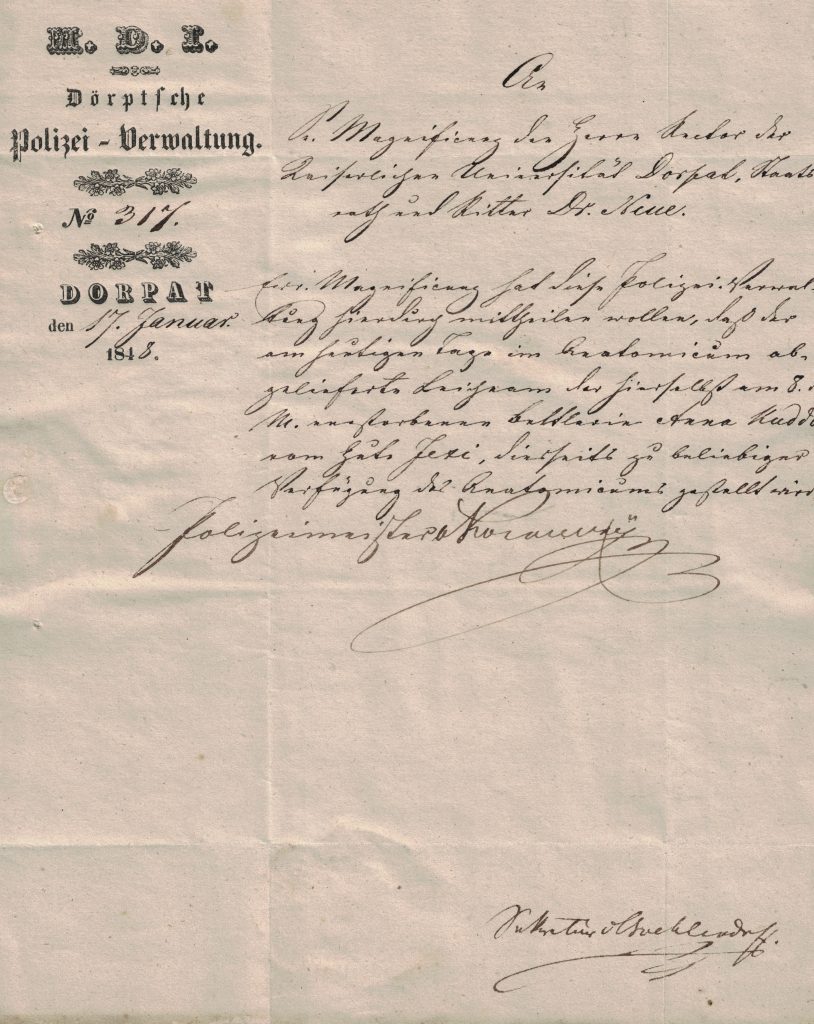 M. D. I.
Dörptsche
Polizei - Verwaltung.
№ 317.
DORPAT
den 17. Januar
1848.
An
Sr. Magnificenz den Herrn Rector der
Kaiserlichen Universität Dorpat, Staats
rath und Ritter Dr. Neue.
Ew. Magnificenz hat diese Polizei-Verwal-
tung hierdurch mittheilen wollen, daß der
am heutigen Tage im Anatomicum ab-
gelieferte Leichnam der hierselbst am 8. d.
M. verstorbenen Bettlerin Anna Kudd
vom Gute , diesseits zu beliebiger
Verfügung des Anatomicums gestellt wird
Polizeimeister
Sekretär